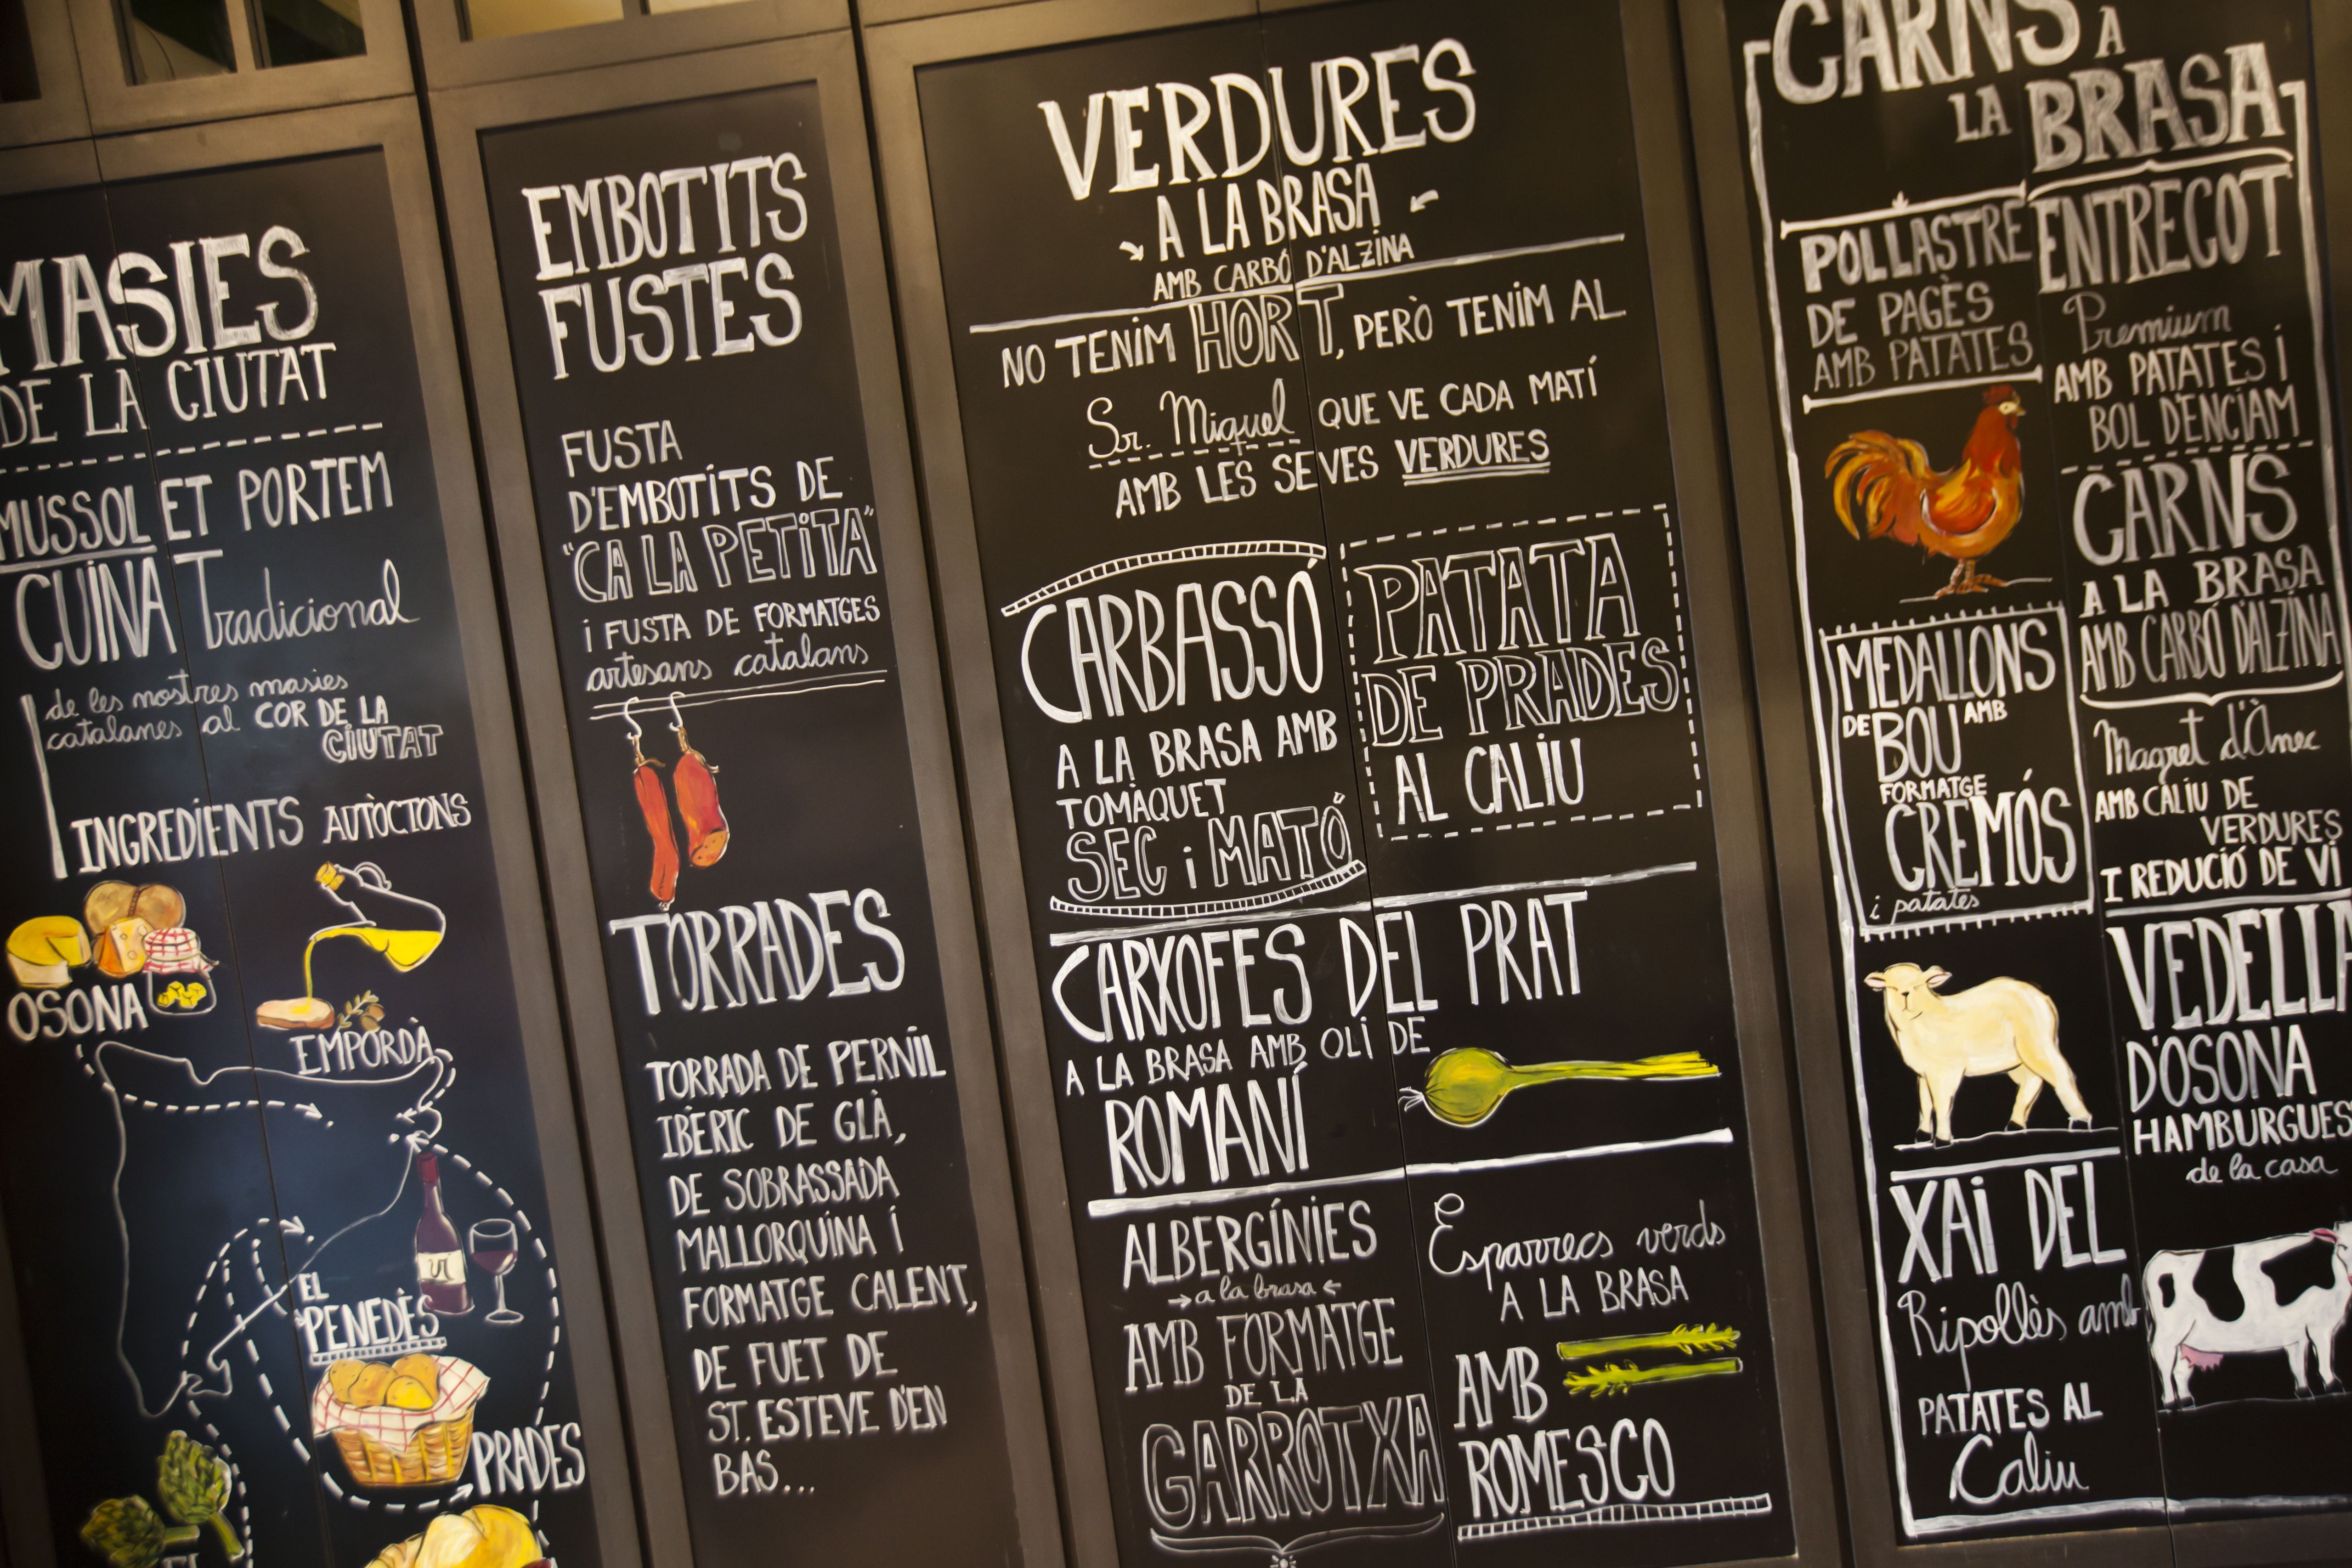 MASIES
DE LA CIUTAT
MUSSOL ET PORTEM
CUINA Tradicional
de les nostres masies
catalanes al COR DE LA
CIUTAT
INGREDIENTS AUTÒCTONS
OSONA
EMPORDÀ
EL
PENEDÈS
PRADES
EL
EMBOTITS
FUSTES
FUSTA
D'EMBOTITS DE
"CA LA PETITA"
i FUSTA DE FORMATGES
artesans catalans
TORRADES
TORRADA DE PERNIL
IBÈRIC DE GLÀ,
DE SOBRASSADA
MALLORQUINA I
FORMATGE CALENT,
DE FUET DE
ST. ESTEVE D'EN
BAS...
VERDURES
A LA BRASA
AMB CARBÓ D'ALZINA
NO TENIM HORT, PERÒ TENIM AL
Sr. Miquel QUE VE CADA MATÍ
AMB LES SEVES VERDURES
CARBASSÓ
A LA BRASA AMB
TOMÀQUET
SEC i MATÓ
PATATA
DE PRADES
AL CALIU
CARXOFES DEL PRAT
A LA BRASA AMB OLI DE
ROMANÍ
ALBERGÍNIES
a la brasa
AMB FORMATGE
DE LA
GARROTXA
Esparrecs verds
A LA BRASA
AMB
ROMESCO
CARNS A
LA BRASA
POLLASTRE
DE PAGÈS
AMB PATATES
MEDALLONS
DE BOU AMB
FORMATGE
CREMÓS
i patates
XAI DEL
Ripollès amb
PATATES AL
Caliu
ENTRECOT
Premium
AMB PATATES i
BOL D'ENCIAM
CARNS
A LA BRASA
AMB CARBÓ D'ALZINA
Magret d'Ànec
AMB CALIU DE
VERDURES
I REDUCIÓ DE VI
VEDELLA
D'OSONA
HAMBURGUES
de la casa